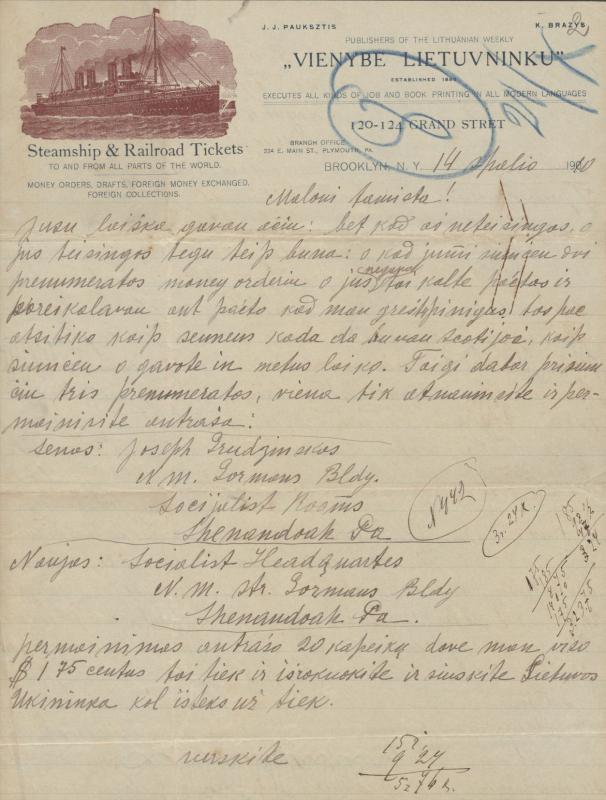 J. J. PAUKSZTIS
K. BRAZYS
2
PUBLISHERS OF THE LITHUANIAN WEEKLY
„VIENYBE LIETUVNINKU"
ESTABLISHED 1886
EXECUTES ALL KINDS OF JOB AND BOOK PRINTING IN ALL MODERN LANGUAGES
120-124 GRAND STRET
Steamship & Railroad Tickets
TO AND FROM ALL PARTS OF THE WORLD.
MONEY ORDERS, DRAFTS, FOREIGN MONEY EXCHANGED.
FOREIGN COLLECTIONS.
BRANCH OFFICE,
234 E. MAIN ST., PLYMOUTH, PA.
BROOKLYN, N. Y. 14 Spalio 1910
Maloni tamista!
Jusu laiška gavau ačiu: bet kad ai neteisingas, o
jus teisingos tegu teip buna: o kad jumi sunčiau dvi
prenumeratos money orderiu o jus negavot tai kalte pačtos ir
pareikalavau ant pačto kad man grežt pinigas, tas pac
atsitiko kaip senneus kada da buvau Scotijoi, kaip
sunčeu o gavote in metus laiko. Taigi dabar prisiun
čiu tris prenumeratos, viena tik atnauinsite ir per-
mainisite antraša:
Senas: Joseph Grudzinskas
N. M. Gormans Bldy.
Socijalist Rooms
Shenandoah Pa
N442
3r. 27k.
Naujas: Socialist Headquartes
N. M. str. Gormans Bldy
Shenandoah Pa.
permainimas antrašo 20 kapeikų dave man viso
$ 1 75 centus tai tiek ir išrokuokite ir siuskite Lietuvos
Ukininka kol išteks už tiek.
verskite
9 27